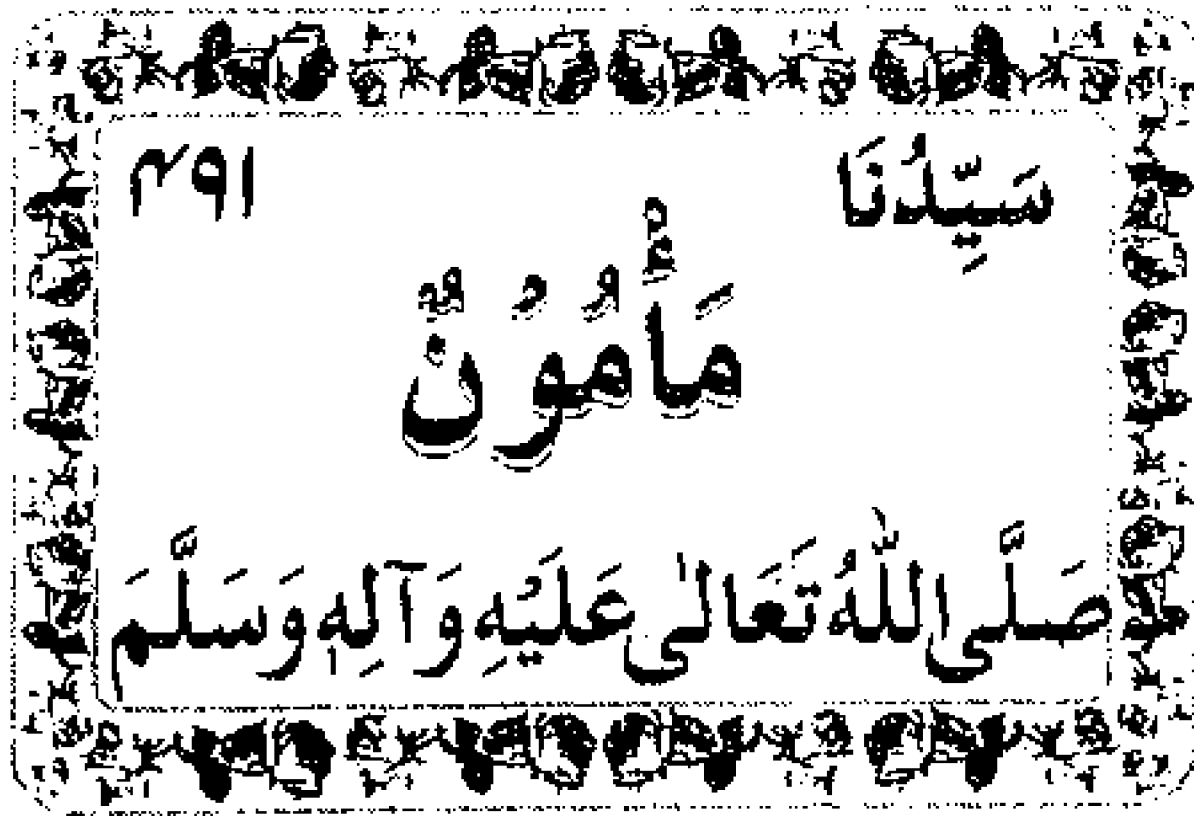 سَيِّدُنَا
مَأْمُوْنٌ
صَلَّى اللّٰهُ تَعَالٰى عَلَيْهِ وَآلِهٖ وَسَلَّمَ